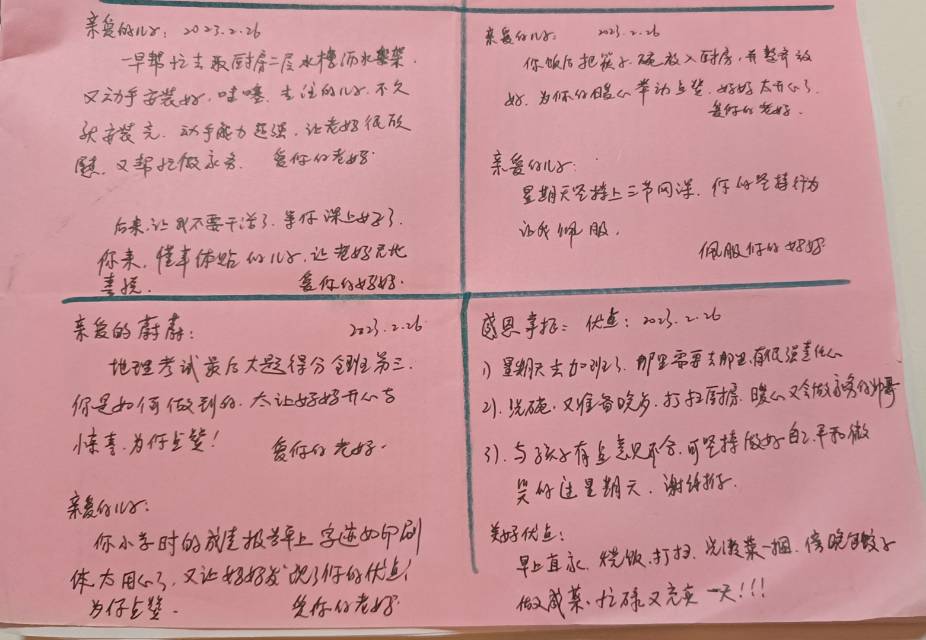 亲爱的儿子: 2023.2.26
一早帮忙去取厨房二层水槽沥水架,
又动手安装好,哇噻,专注的儿子,不久
就安装完,动手能力超强,让老妈很欣
慰,又帮忙做家务. 爱你的老妈
后来,让我不要干活了,等你课上好了,
你来,懂事体贴的儿子,让老妈如此
喜悦. 爱你的妈妈.
亲爱的儿子: 2023.2.26
你饭后把筷子,碗放入厨房,并整齐放
好,为你的暖心举动点赞,妈妈太开心了.
爱你的老妈.
亲爱的儿子:
星期天坚持上三节网课,你的坚持行为
让我佩服,
佩服你的妈妈
亲爱的蔚蔚: 2023.2.26
地理考试最后大题得分全班第三,
你是如何做到的,太让妈妈开心与
惊喜,为你点赞! 爱你的老妈.
亲爱的儿子:
你小学时的成绩报告单上字迹如印刷
体,太用心了,又让妈妈发现了你的优点!
为你点赞. 爱你的老妈.
感恩 优点: 2023.2.26
1) 星期天去加班了,那里需要去那里,有很强责任心
2). 洗碗,又准备晚歺,打扫厨房,暖心又会做家务的帅哥
3). 与孩子有点意见不合,可坚持做好自己,平和微
笑的过星期天,谢谢
美好优点:
早上直永,烧饭,打扫,洗 菜一捆,傍晚包饺子
做咸菜,忙碌又充实一天!!!